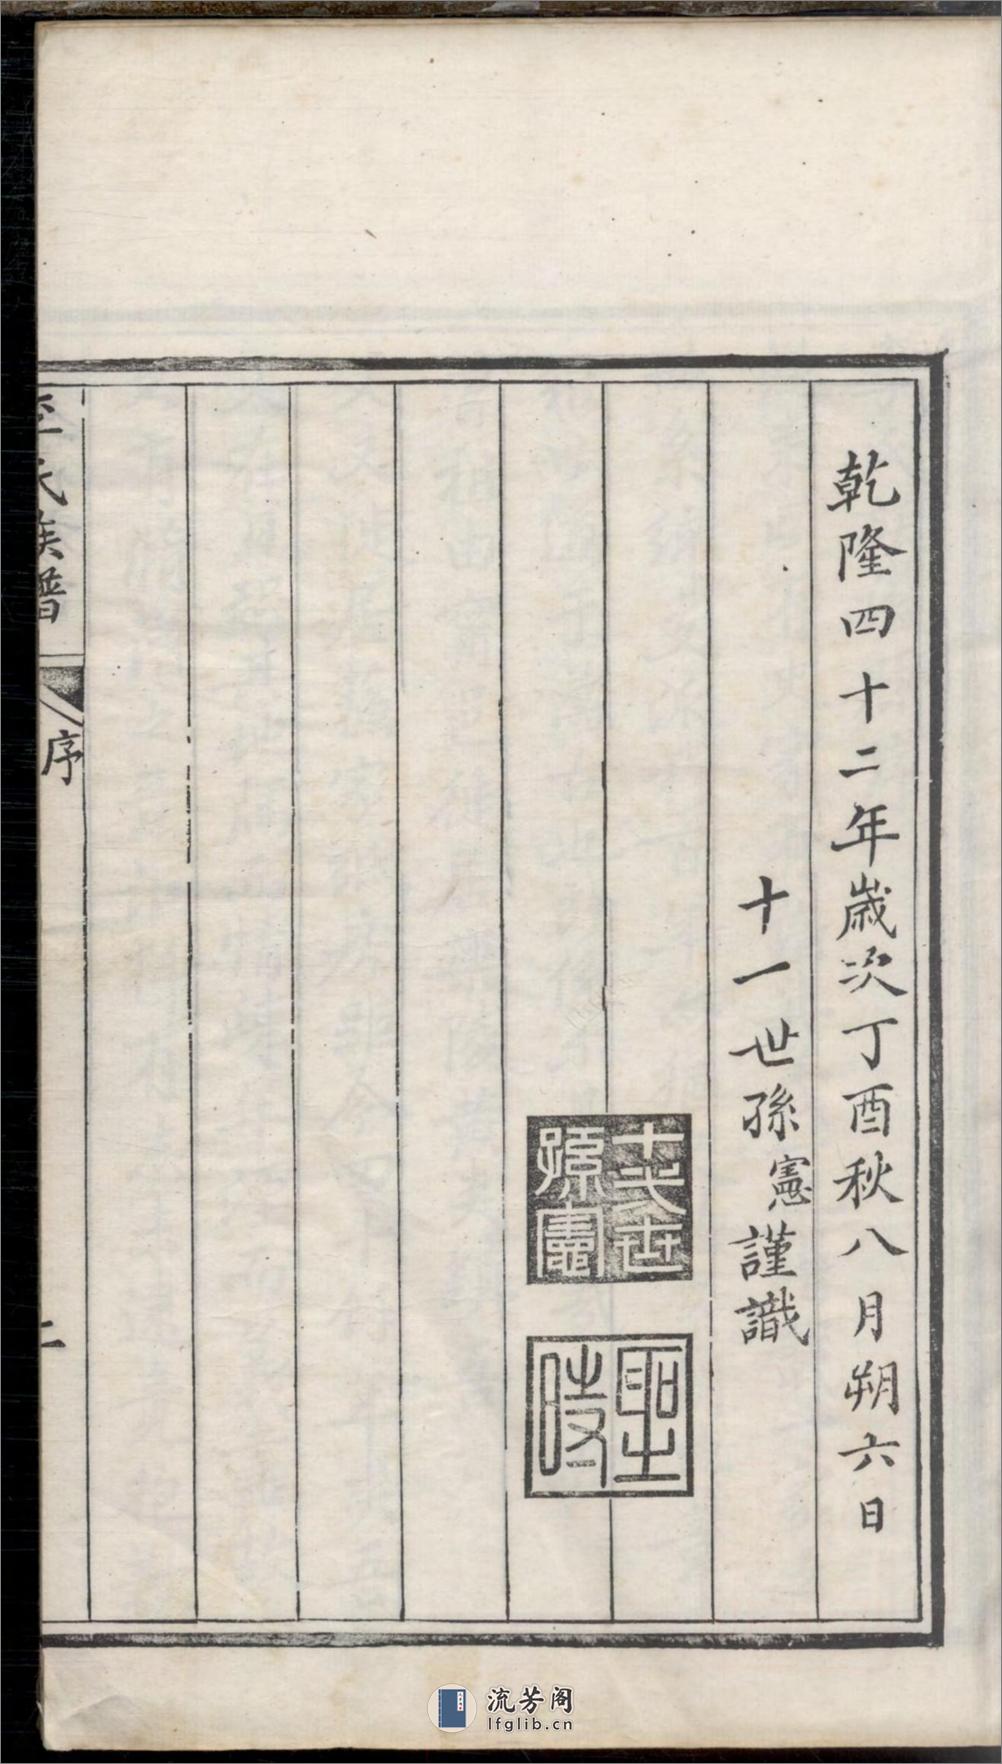 乾隆四十二年歲次丁酉秋八月朔六日
十一世孫憲謹識
十一世
孫憲
聖
時
氏族譜
序
二
流芳阁
lfglib.cn